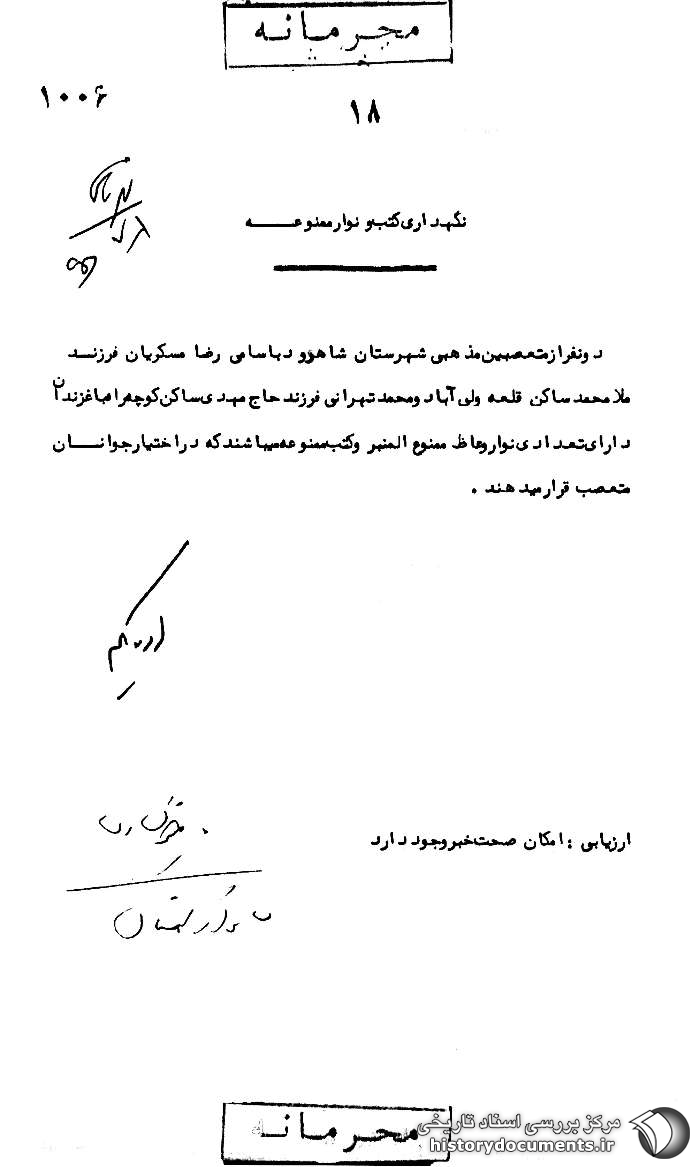 محرمانه
۱۰۰۶
۱۸
نگهداری کتب و نوار ممنوعه
دو نفر از متعصبین مذهبی شهرستان شاهرود باسامی رضا عسکریان فرزند
ملا محمد ساکن قلعه ولی آباد و محمد تهرانی فرزند حاج مهدی ساکن کوچه
دارای تعدادی نوار وعاظ ممنوع المنبر و کتب ممنوعه میباشند که در اختیار جوانان
متعصب قرار میدهند .
ارزیابی : امکان صحت خبر وجود دارد
محرمانه
مرکز بررسی اسناد تاریخی
historydocuments.ir